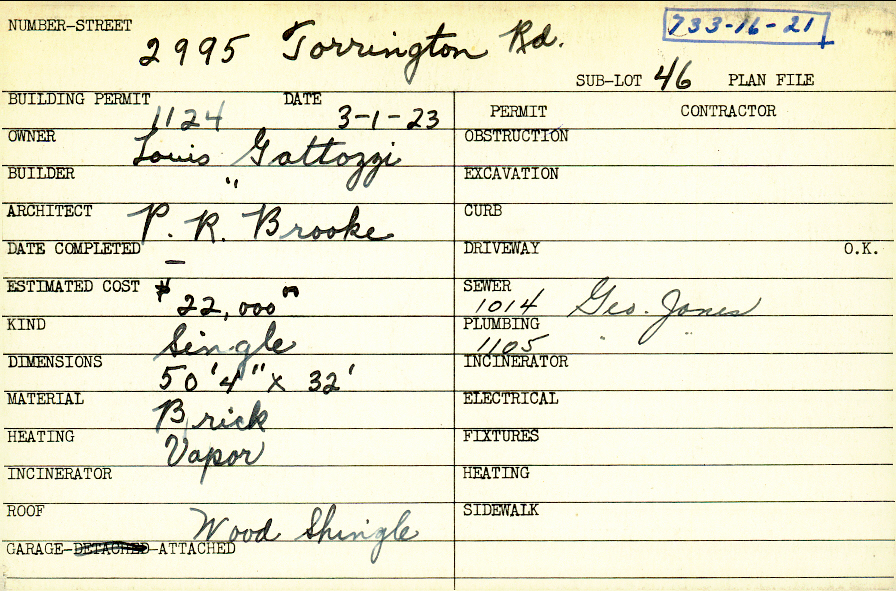 NUMBER-STREET 2995 Torrington Rd. 733-16-21
SUB-LOT 46 PLAN FILE
BUILDING PERMIT 1124 DATE 3-1-23
OWNER Louis Gattozzi
BUILDER "
ARCHITECT P. R. Brooke
DATE COMPLETED —
ESTIMATED COST $22,000⁰⁰
KIND Single
DIMENSIONS 50'4" x 32'
MATERIAL Brick
HEATING Vapor
INCINERATOR
ROOF Wood Shingle
GARAGE-DETACHED-ATTACHED
PERMIT CONTRACTOR
OBSTRUCTION
EXCAVATION
CURB
DRIVEWAY O.K.
SEWER 1014 Geo. Jones
PLUMBING 1105 " "
INCINERATOR
ELECTRICAL
FIXTURES
HEATING
SIDEWALK